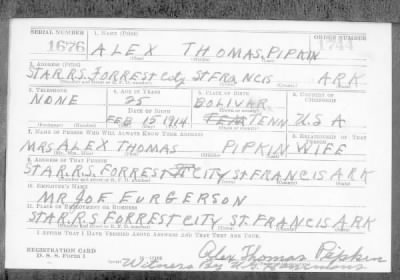 SERIAL NUMBER 1. NAME (Print) ORDER NUMBER
1676 ALEX THOMAS PIPKIN 1744
(First) (Middle) (Last)
2. ADDRESS (Print)
STAR.R5. FORREST City St FRANCIS ARK
3. TELEPHONE 4. AGE IN YEARS 5. PLACE OF BIRTH 6. COUNTRY OF CITIZENSHIP
NONE 25 BOLIVAR
DATE OF BIRTH
FEB 15 1914 TENN U.S.A
7. NAME OF PERSON WHO WILL ALWAYS KNOW YOUR ADDRESS 8. RELATIONSHIP OF THAT PERSON
MRS ALEX THOMAS PIPKIN WIFE
9. ADDRESS OF THAT PERSON
STAR.R5. FORREST CITY ST FRANCIS ARK
10. EMPLOYER'S NAME
MR JOE FURGERSON
11. PLACE OF EMPLOYMENT OR BUSINESS
STAR.R5 FORREST CITY ST. FRANCIS ARK
I AFFIRM THAT I HAVE VERIFIED ABOVE ANSWERS AND THAT THEY ARE TRUE.
REGISTRATION CARD
D. S. S. Form 1
Alex Thomas Pipkin
Witness By